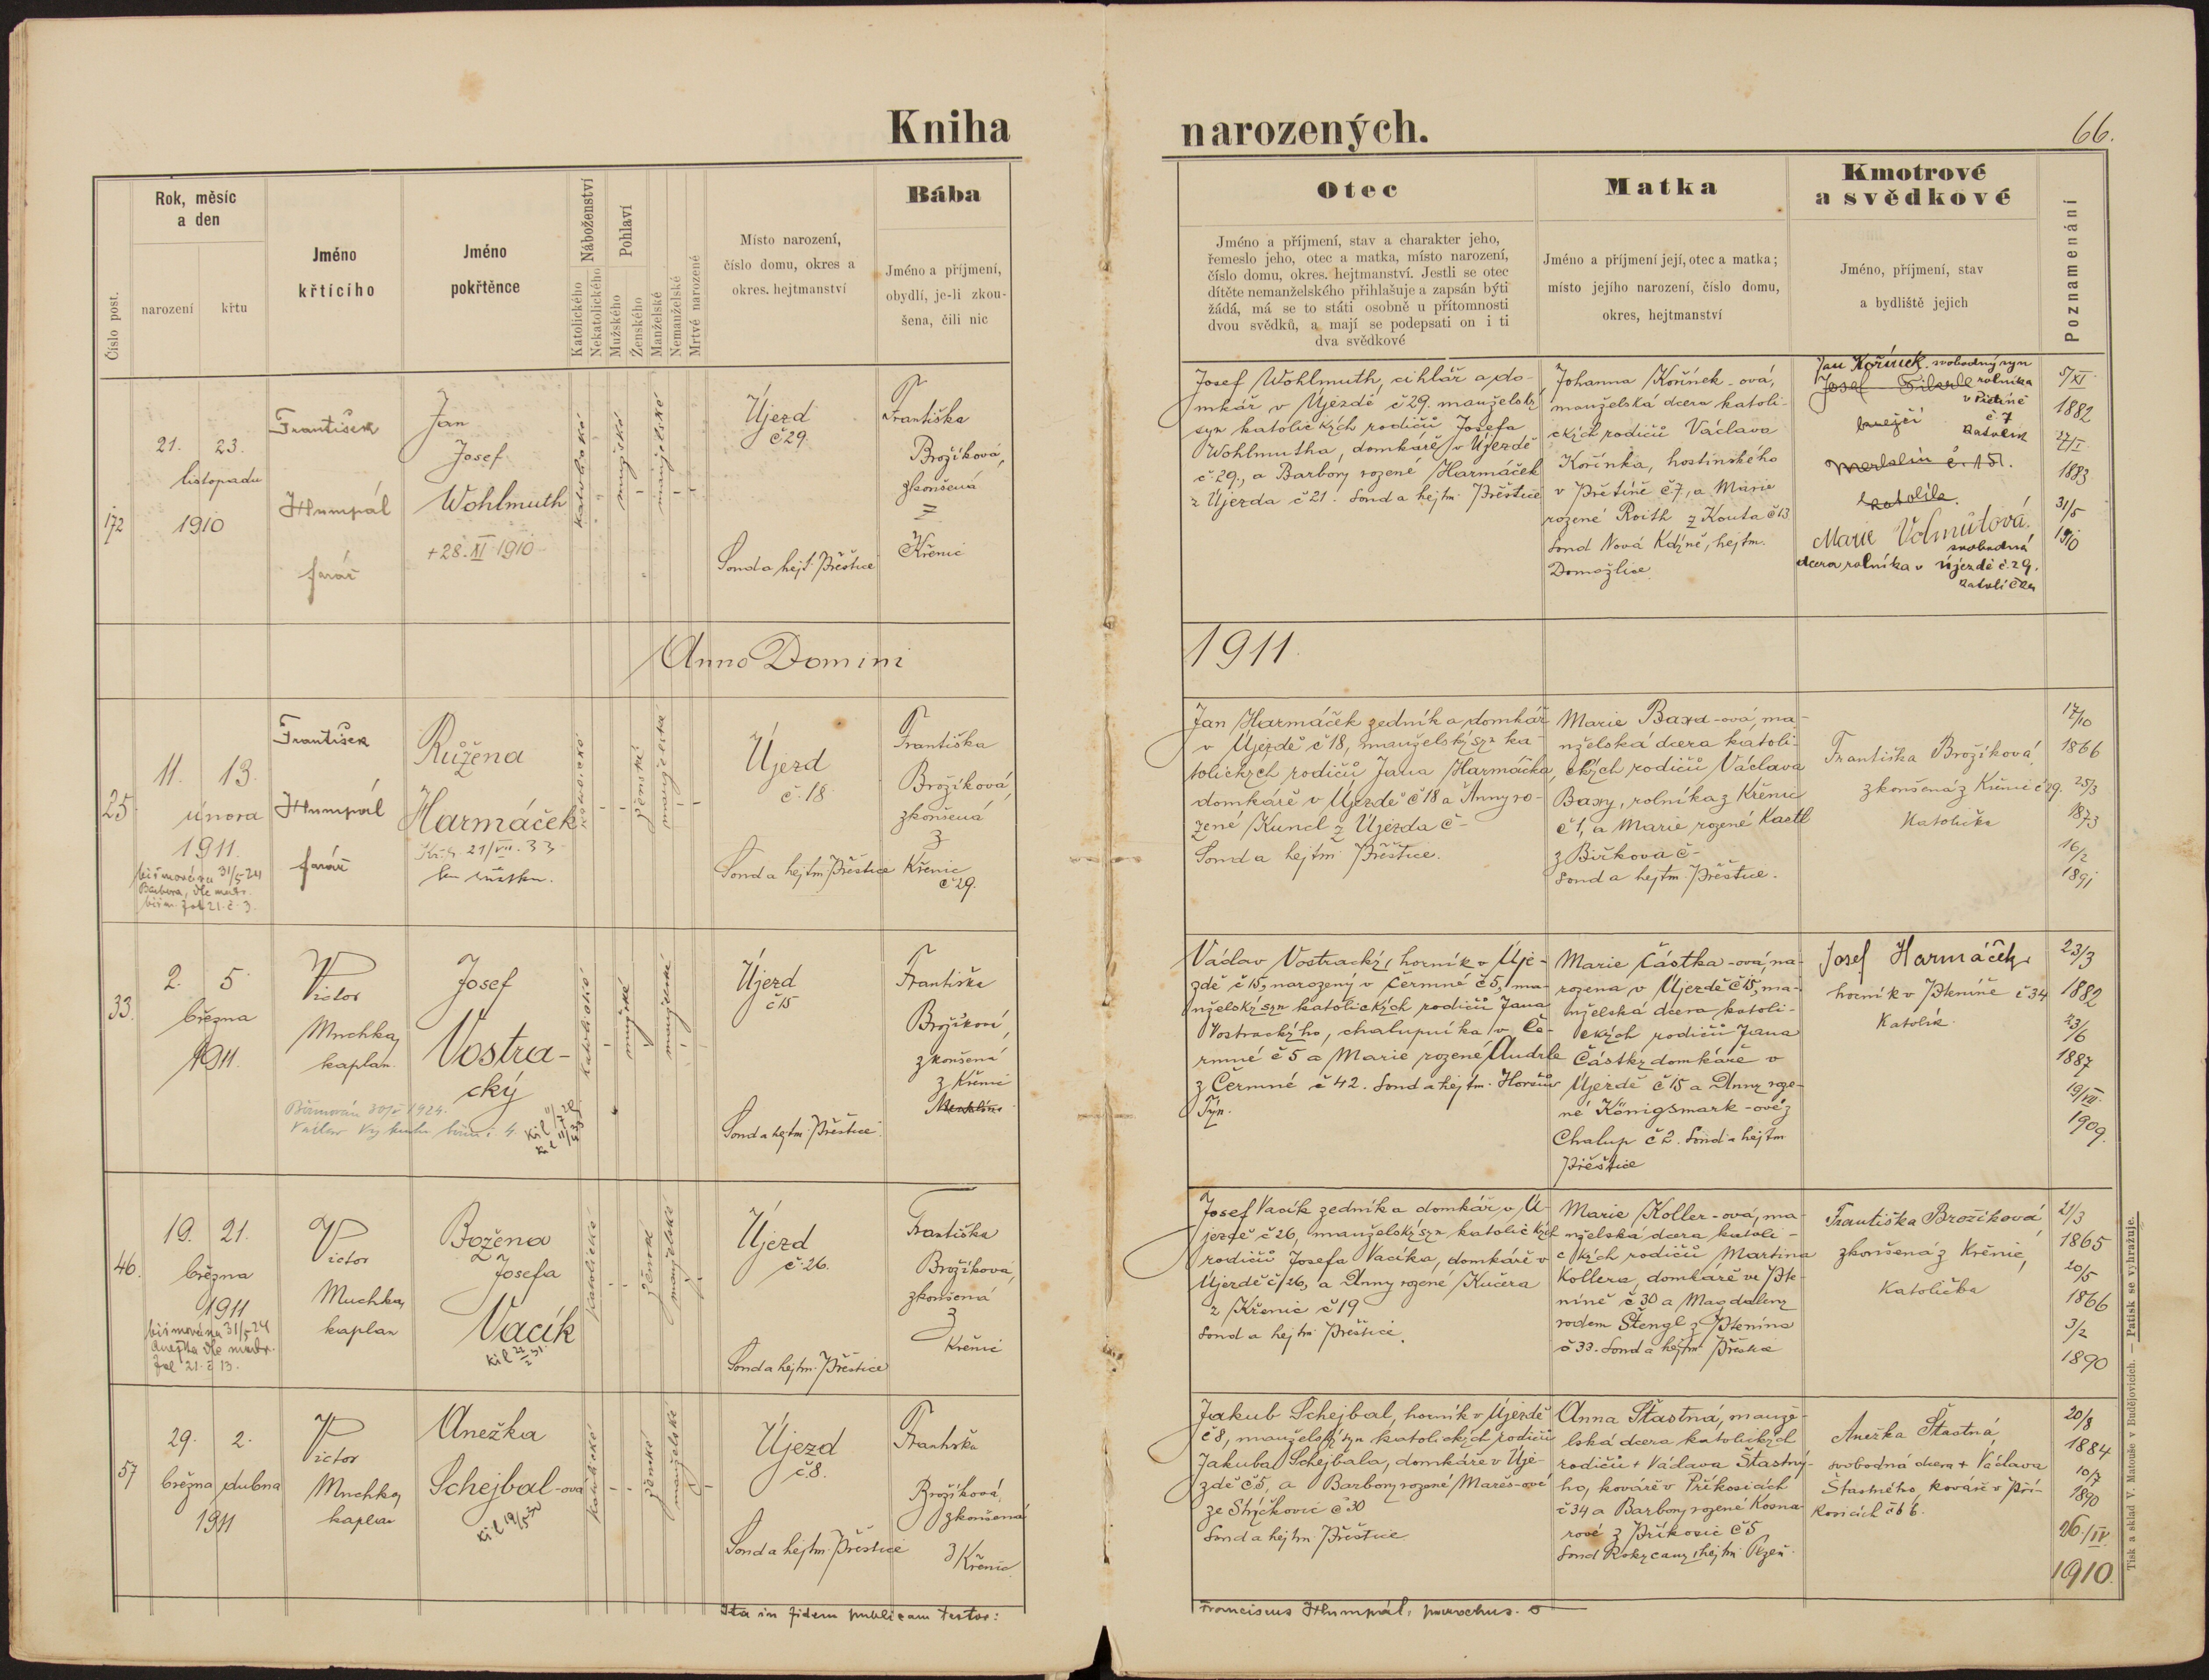 Kniha
narozených.
66.
Číslo post.
Rok, měsíc
a den
narození
křtu
Jméno
křtícího
Jméno
pokřtěnce
Náboženství
Katolického
Nekatolického
Pohlaví
Mužského
Ženského
Manželské
Nemanželské
Mrtvé narozené
Místo narození,
číslo domu, okres a
okres. hejtmanství
Bába
Jméno a příjmení,
obydlí, je-li zkou-
šena, čili nic
Otec
Jméno a příjmení, stav a charakter jeho,
řemeslo jeho, otec a matka, místo narození,
číslo domu, okres. hejtmanství. Jestli se otec
dítěte nemanželského přihlašuje a zapsán býti
žádá, má se to státi osobně u přítomnosti
dvou svědků, a mají se podepsati on i ti
dva svědkové
Matka
Jméno a příjmení její, otec a matka;
místo jejího narození, číslo domu,
okres, hejtmanství
Kmotrové
a svědkové
Jméno, příjmení, stav
a bydliště jejich
Poznamenání
172
21. 23.
listopadu
1910
František
Humpál
farář
Jan
Josef
Wohlmuth
+28.XI 1910
katolické
mužské
manželské
Újezd
č 29.
Soud a hejt. Přeštice
Františka
Brožíková,
zkoušená
z
Křenic
Josef Wohlmuth, cihlář a do-
mkář v Újezdě č 29. manželský
syn katolických rodičů Josefa
Wohlmutha, domkáře v Újezdě
č. 29., a Barbory rozené Harmáček
z Újezda č 21. Soud a hejtm. Přeštice
Johanna Kořínek-ová,
manželská dcera katoli-
ckých rodičů Václava
Kořínka, hostinského
v Přetíně č 7, a Marie
rozené Roith z Kouta č 13
Soud Nová Kdyně, hejtm.
Domažlice
Jan Kořínek svobodný syn
Josef rolníka
č 7
katolík
Merklín č. 151.
katolík.
Marie Volmutová.
svobodná
dcera rolníka v Újezdě č. 29.
katolička
5/XI
1882
27/I
1883
31/5
1910
Anno Domini
1911.
25.
11. 13.
února
1911.
biřmována 31/5 24
Barbora, dle matr.
biřm. fol 21. č. 3.
František
Humpál
farář
Růžena
Harmáček
21/VII. 33
katolické
ženské
manželské
Újezd
č. 18.
Soud a hejtm. Přeštice
Františka
Brožíková,
zkoušená
z
Křenic
č 29.
Jan Harmáček zedník a domkář
v Újezdě č 18, manželský syn ka-
tolických rodičů Jana Harmáčka,
domkáře v Újezdě č 18 a Anny ro-
zené Kuncl z Újezda č -
Soud a hejtm Přeštice.
Marie Baxa-ová, ma-
nželská dcera katoli-
ckých rodičů Václava
Baxy, rolníka z Křenic
č 1, a Marie rozené Kastl
z Biřkova č -
Soud a hejtm Přeštice.
Františka Brožíková,
zkoušená z Křenic č 29.
Katolička
17/10
1866
25/3
1873
16/2
1891
33.
2. 5
března
1911.
Biřmován 30/5 1924.
Victor
Muchka,
kaplan.
Josef
Vostra-
cký
katolické
mužské
manželské
Újezd
č 15
Soud a hejtm. Přeštice
Františka
Brožíková,
zkoušená
z Křenic
Merklína
Václav Vostracký, horník v Úje-
zdě č 15, narozený v Čermné č 5, ma-
nželský syn katolických rodičů Jana
Vostrackýho, chalupníka v Če-
rmné č 5 a Marie rozené Andrle
z Čermné č 42. Soud a hejtm. Horšův
Týn.
Marie Částka-ová, na-
rozena v Újezdě č 15, ma-
nželská dcera katoli-
ckých rodičů Jana
Částky domkáře v
Újezdě č 15 a Anny roze-
né Königsmark-ové z
Chalup č 2. Soud a hejtm
Přeštice
Josef Harmáček
horník v Ptenině č 34
Katolík.
23/3
1882
23/6
1887
19/VII.
1909.
46.
19. 21.
března
1911
biřmována 31/5 24
Anežka dle matr.
fol 21. č 13.
Victor
Muchka,
kaplan
Božena
Josefa
Vacík
katolické
ženské
manželské
Újezd
č. 26.
Soud a hejtm. Přeštice
Františka
Brožíková,
zkoušená
z
Křenic
Josef Vacík zedník a domkář v Ú-
jezdě č 26, manželský syn katolických
rodičů Josefa Vacíka, domkáře v
Újezdě č 26, a Anny rozené Kučera
z Křenic č 19
Soud a hejtm Přeštice.
Marie Koller-ová, ma-
nželská dcera katoli-
ckých rodičů Martina
Kollera, domkáře ve Pte-
níně č 30 a Magdaleny
rodem Štengl z Ptenína
č 33. Soud a hejtm Přeštice
Františka Brožíková
zkoušená z Křenic,
Katolička
21/3
1865
20/5
1866
3/2
1890
57
29. 2.
března dubna
1911
Victor
Muchka,
kaplan
Anežka
Schejbal-ová
katolické
ženské
manželské
Újezd
č. 8.
Soud a hejtm. Přeštice
Františka
Brožíková,
zkoušená
z Křenic.
Jakub Schejbal, horník v Újezdě
č 8, manželský syn katolických rodičů
Jakuba Schejbala, domkáře v Úje-
zdě č 5, a Barbory rozené Mareš-ové
ze Strýčkovic č 30
Soud a hejtm Přeštice
Anna Šťastná, manže-
lská dcera katolických
rodičů + Václava Šťastný-
ho, kováře v Příkosicích
č 34 a Barbory rozené Kosna-
rové z Příkosic č 5
Soud Rokycany, hejtm. Plzeň.
Anežka Šťastná,
svobodná dcera + Václava
Šťastného, kováře v Pří-
kosicích č 66.
20/8
1884
10/7
1890
26./IV.
1910.
Ita in fidem publicam testor:
Franciscus Humpál, parochus.
Tisk a sklad V. Matouše v Budějovicích. — Patisk se vyhražuje.